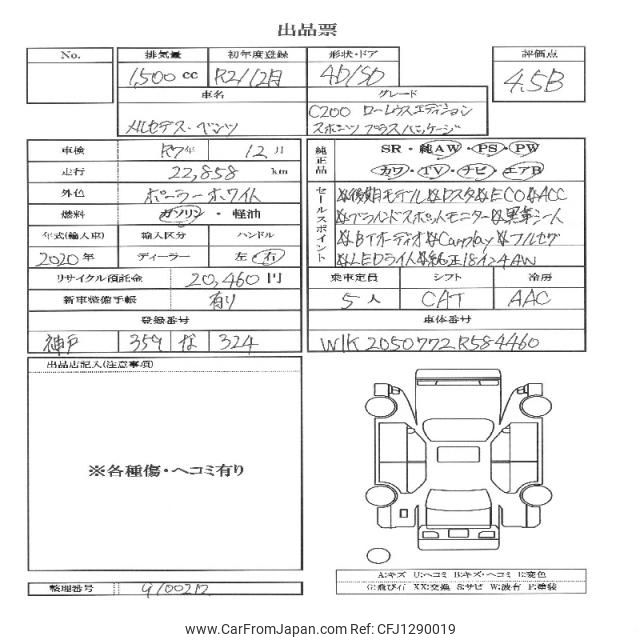 出品票
No. 排気量 初年度登録 形状・ドア 評価点
1,500 cc R2/12月 4D/SD 4.5B
車名 グレード
メルセデス・ベンツ C200 ローレウスエディション
スポーツプラスパッケージ
車検 R7年 12月
純正品 SR・純AW・PS・PW
走行 22,858 km
カワ・TV・ナビ・エアB
外色 ポーラーホワイト
セールスポイント
☆後期モデル☆Dスタ☆ECO☆ACC
燃料 ガソリン・軽油
☆ブラインドスポットモニター☆黒革シート
年式(輸入車) 輸入区分 ハンドル
☆BTオーディオ☆Carplay☆フルセグ
2020年 ディーラー 左・右
☆LEDライト☆純正18インチAW
リサイクル預託金 20,460円
乗車定員 シフト 冷房
新車整備手帳 有り
5人 CAT AAC
登録番号 車体番号
神戸 359 な 324
W1K2050772R584460
出品店記入(注意事項)
※各種傷・ヘコミ有り
A:キズ U:ヘコミ B:キズ・ヘコミ E:変色
G:飛び石 XX:交換 S:サビ W:波有 P:塗装
整理番号 4100212
www.CarFromJapan.com - CFJ1290019